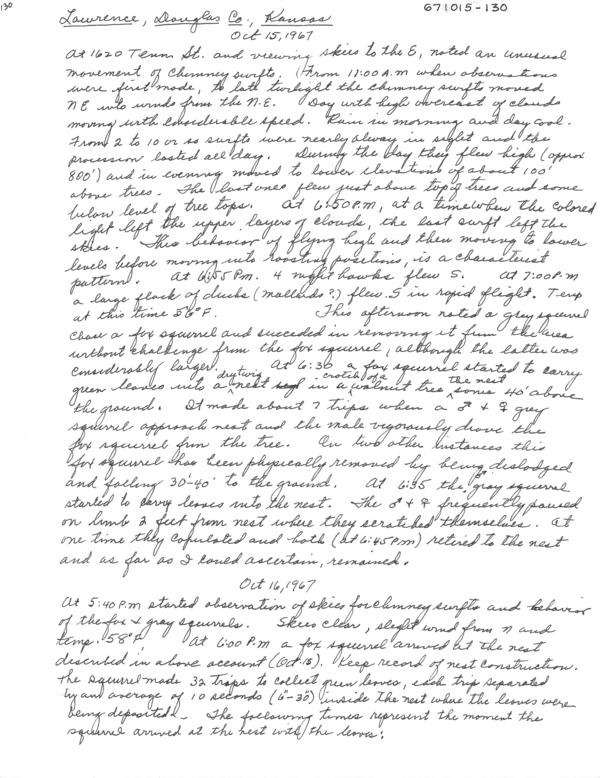 130
671015-130
Lawrence, Douglas Co., Kansas
Oct 15, 1967
At 1620 Tenn St. and viewing skies to the E, noted an unusual
movement of chimney swifts. (From 11:00 A.M when observations
were first made, to late twilight the chimney swifts moved
NE into winds from the N.E. Day with high overcast of clouds
moving with considerable speed. Rain in morning and day cool.
From 2 to 10 or so swifts were nearly always in sight and the
procession lasted all day. During the day they flew high (approx
800') and in evening moved to lower elevations of about 100'
above trees. The last ones flew just above top of trees and some
below level of tree tops. At 6:50 P.M, at a time when the colored
light left the upper layers of clouds, the last swift left the
skies. This behavior of flying high and then moving to lower
levels before moving into roosting positions, is a characterist
pattern. At 6:55 P.M. 4 nighthawks flew S. At 7:00 P.M
a large flock of ducks (mallards?) flew S in rapid flight. Temp
at this time 56°F. This afternoon noted a grey squirrel
chase a fox squirrel and succeded in removing it from the area
without challenge from the fox squirrel, although the latter was
considerably larger. At 6:30 a fox squirrel started to carry
green leaves into a dry twig nest in a crotch of a walnut tree the nest some 40' above
the ground. It made about 7 trips when a ♂ + ♀ grey
squirrel approach nest and the male vigorously drove the
fox squirrel from the tree. On two other instances this
fox squirrel has been physically removed by being dislodged
and falling 30'-40' to the ground. At 6:35 the ♂ gray squirrel
started to carry leaves into the nest. The ♂ + ♀ frequently paused
on limb 2 feet from nest where they scratched themselves. At
one time they copulated and both (at 6:45 PM) retired to the nest
and as far as I could ascertain, remained.
Oct 16, 1967
At 5:40 P.M started observation of skies for chimney swifts and behavior
of the fox + gray squirrels. Skies clear, slight wind from N and
temp. 58°F. At 6:00 P.M a fox squirrel arrived at the nest
described in above account (Oct. 15). Keep record of nest construction.
The squirrel made 32 trips to collect green leaves, each trip separated
by an average of 10 seconds (6"-30") inside the nest where the leaves were
being deposited. The following times represent the moment the
squirrel arrived at the nest with the leaves: